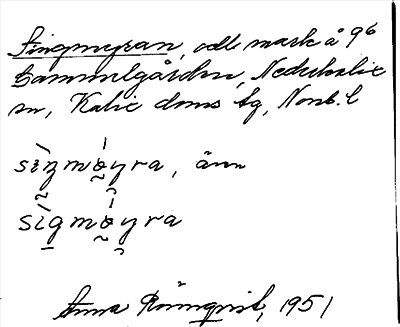 Singmyran, odl. mark å 96
Gammelgården, Nederkalix
sn, Kalix doms tg, Norrb. l
sìŋmø̀yra, även
sìgmø̀yra
Anna Rönnqvist, 1951